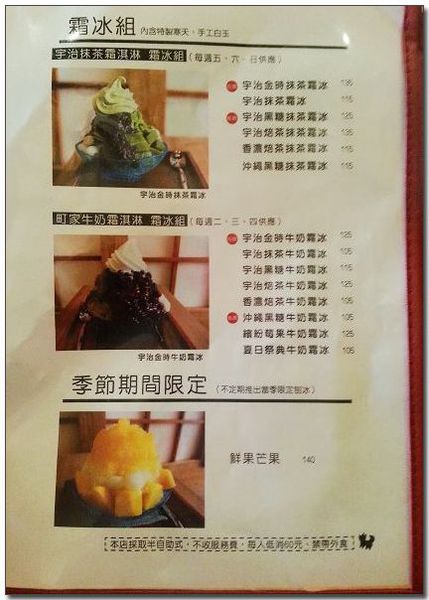 霜冰組 內含特製寒天，手工白玉
宇治抹茶霜淇淋 霜冰組(每週五、六、日供應)
宇治金時抹茶霜冰 135
宇治抹茶霜冰 115
宇治黑糖抹茶霜冰 125
宇治焙茶抹茶霜冰 135
香濃焙茶抹茶霜冰 115
沖繩黑糖抹茶霜冰 115
宇治金時抹茶霜冰
町家牛奶霜淇淋 霜冰組(每週二、三、四供應)
宇治金時牛奶霜冰 125
宇治抹茶牛奶霜冰 105
宇治黑糖牛奶霜冰 115
宇治焙茶牛奶霜冰 125
香濃焙茶牛奶霜冰 105
沖繩黑糖牛奶霜冰 105
繽紛莓果牛奶霜冰 125
夏日祭典牛奶霜冰 105
宇治金時牛奶霜冰
季節期間限定 (不定期推出當季限定刨冰)
鮮果芒果 140
本店採取半自助式，不收服務費，每人低消60元、禁帶外食